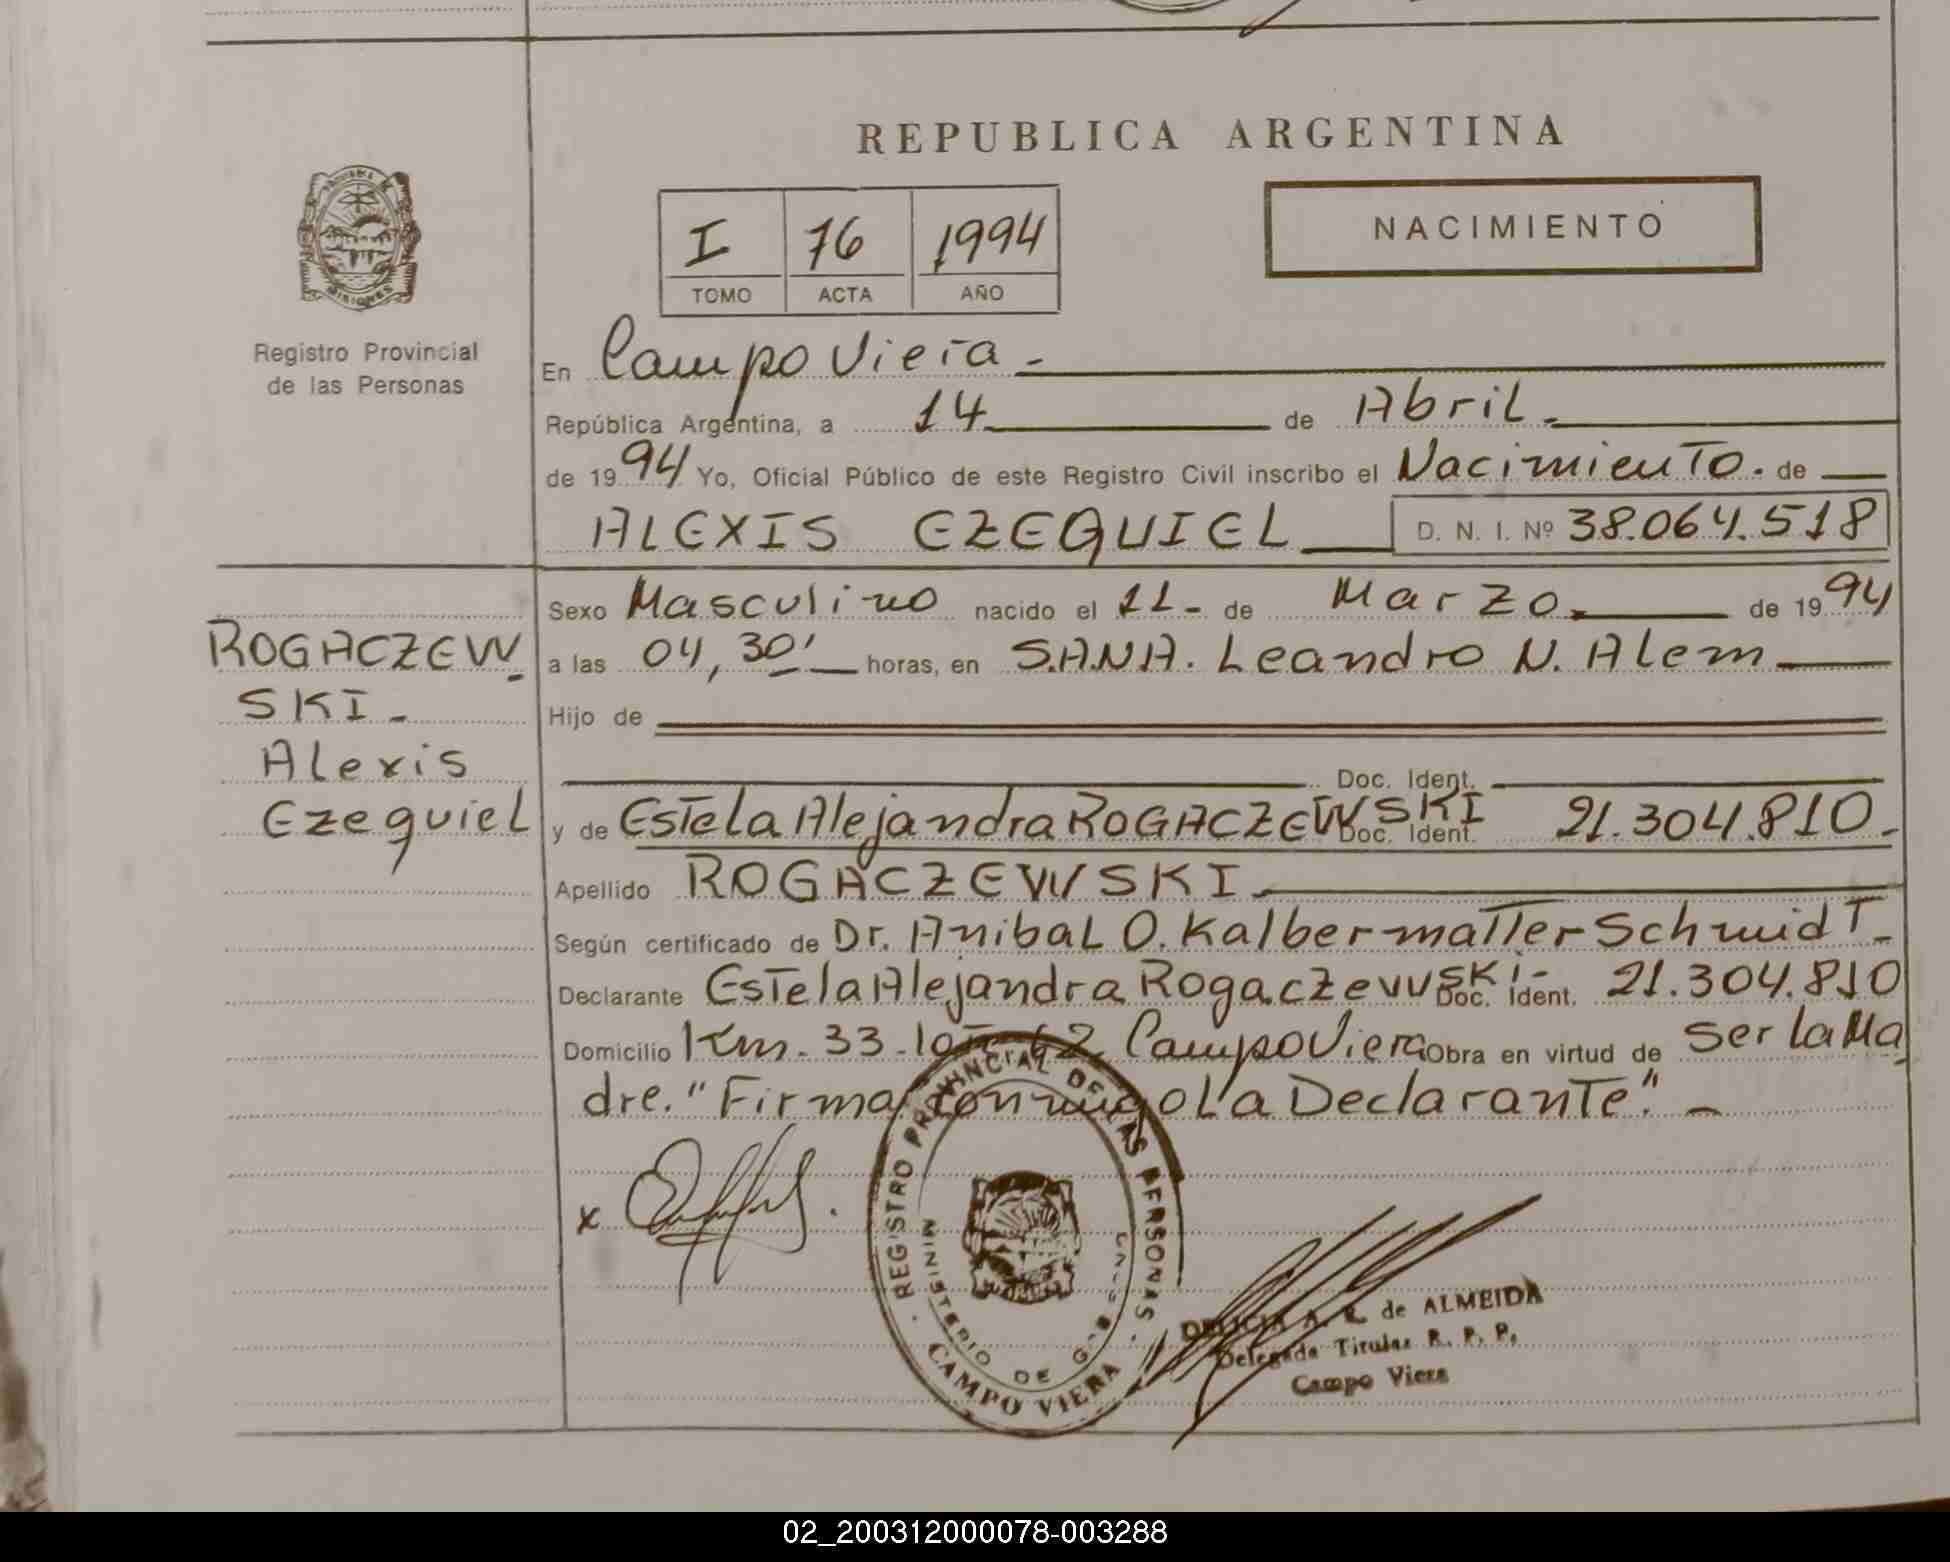 REPUBLICA ARGENTINA
I 76 1994
TOMO ACTA AÑO
NACIMIENTO
Registro Provincial
de las Personas
En Campo Viera -
República Argentina, a 14 de Abril.
de 1994 Yo, Oficial Público de este Registro Civil inscribo el Nacimiento. de
ALEXIS EZEQUIEL D. N. I. Nº 38.064.518
ROGACZEW
SKI -
Alexis
Ezequiel
Sexo Masculino nacido el 11- de Marzo. de 1994
a las 04,30' horas, en S.A.N.A. Leandro N. Alem
Hijo de
Doc. Ident.
y de Estela Alejandra ROGACZEWSKI Doc. Ident. 21.304.810.
Apellido ROGACZEWSKI
Según certificado de Dr. Anibal O. Kalbermatter Schmidt -
Declarante Estela Alejandra Rogaczewski- Doc. Ident. 21.304.810
Domicilio Km. 33 - lote 62 Campo Viera Obra en virtud de Ser la Ma
dre. "Firma conmigo la Declarante". -
x
REGISTRO PROVINCIAL DE LAS PERSONAS
MINISTERIO DE
CAMPO VIERA
DELICIA A. R. de ALMEIDA
Delegada Titular R. P. P.
Campo Viera
02_200312000078-003288